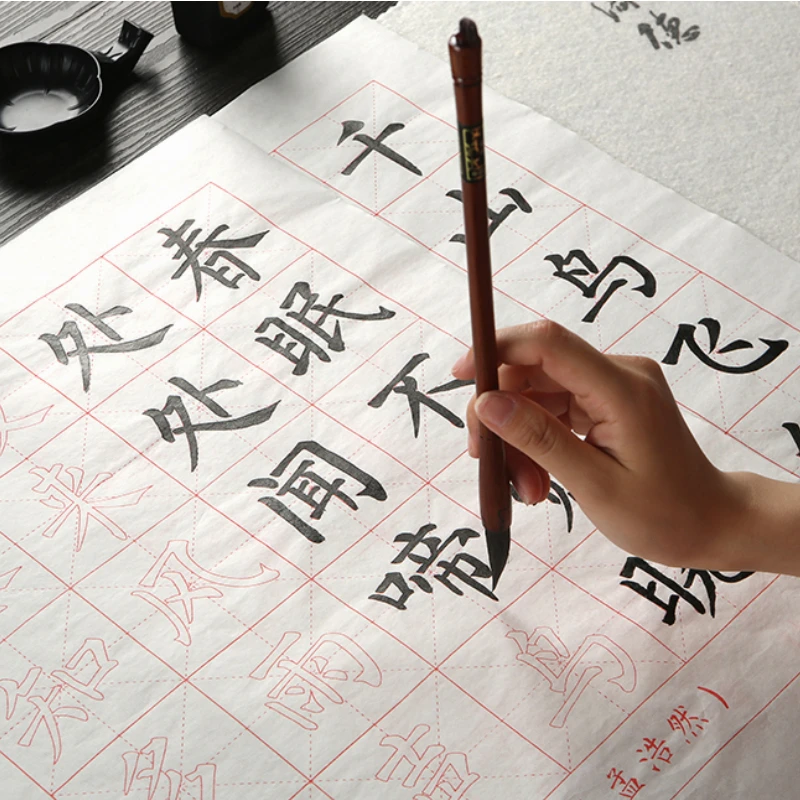 千山鸟飞
春眠不晓
处处闻啼鸟
来风雨声
知多
孟浩然）